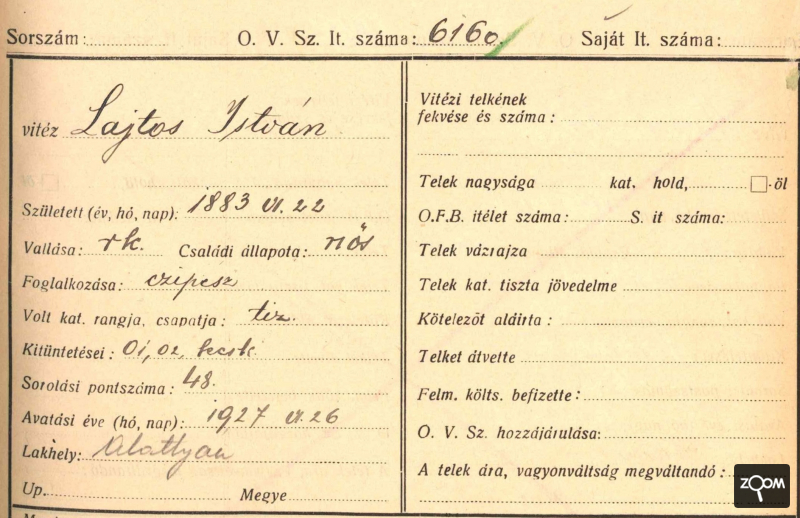 Sorszám: O. V. Sz. It. száma: 6160. Saját It. száma:
vitéz Lajtos István
Született (év, hó, nap): 1883 VI. 22
Vallása: rk. Családi állapota: nős
Foglalkozása: czipész
Volt kat. rangja, csapatja: tiz.
Kitüntetései: OI, O2, kcsk.
Sorolási pontszáma: 48.
Avatási éve (hó, nap): 1927 VI. 26
Lakhely: Alattyán
Up. Megye
Vitézi telkének
fekvése és száma:
Telek nagysága kat. hold, □-öl
O.F.B. itélet száma: S. it száma:
Telek vázrajza
Telek kat. tiszta jövedelme
Kötelezőt aláirta:
Telket átvette
Felm. költs. befizette:
O. V. Sz. hozzájárulása:
A telek ára, vagyonváltság megváltandó:
ZOOM